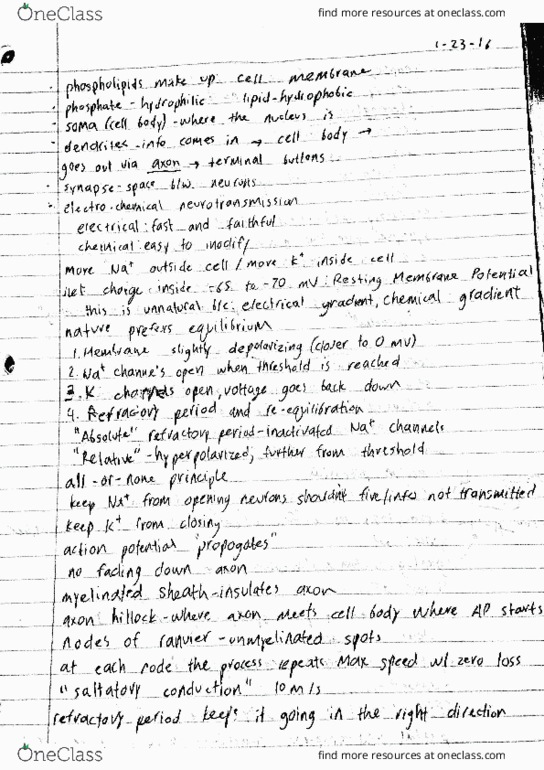 OneClass
find more resources at oneclass.com
1-23-16
· phospholipids make up cell membrane
· phosphate - hydrophilic lipid-hydrophobic
· soma (cell body) - where the nucleus is
· dendrites - info comes in → cell body →
goes out via axon → terminal buttons
· synapse - space b/w neurons
· electro-chemical neurotransmission
electrical: fast and faithful
chemical: easy to modify
more Na⁺ outside cell / more K⁺ inside cell
net charge inside -65 to -70 mV: Resting Membrane Potential
this is unnatural b/c: electrical gradient, chemical gradient
nature prefers equilibrium
1. Membrane slightly depolarizing (closer to 0 mV)
2. Na⁺ channels open when threshold is reached
3. K channels open, voltage goes back down
4. Refractory period and re-equilibration
"Absolute" refractory period - inactivated Na⁺ channels
"Relative" - hyperpolarized, further from threshold
all-or-none principle
keep Na⁺ from opening neurons shouldn't fire/info not transmitted
keep K⁺ from closing
action potential "propogates"
no fading down axon
myelinated sheath - insulates axon
axon hillock - where axon meets cell body where AP starts
nodes of ranvier - unmyelinated spots
at each node the process repeats Max speed w/ zero loss
"saltatory conduction" 10 m/s
refractory period keeps it going in the right direction
OneClass
find more resources at oneclass.com